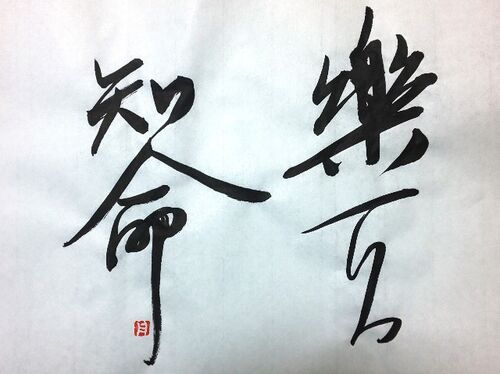 樂天
知命